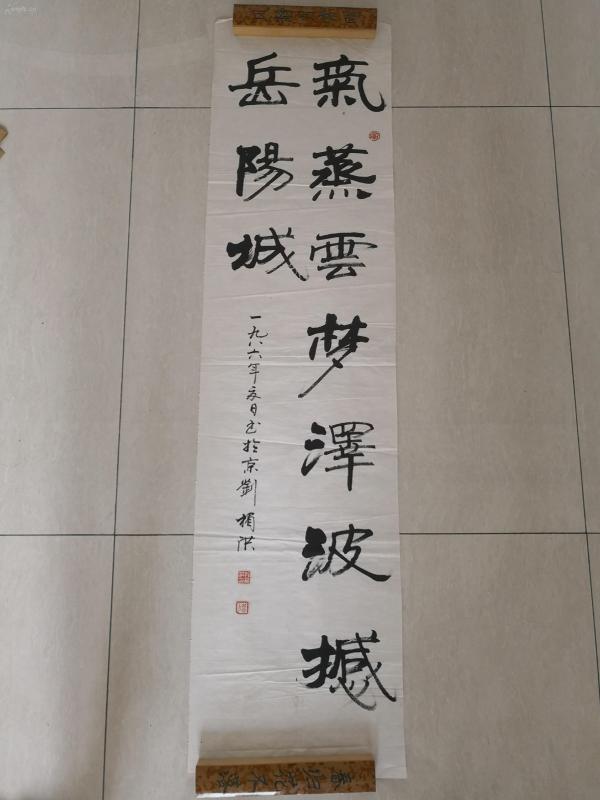 氣蒸雲梦澤波撼
岳陽城
一九八六年夏日书於京劉楨洪